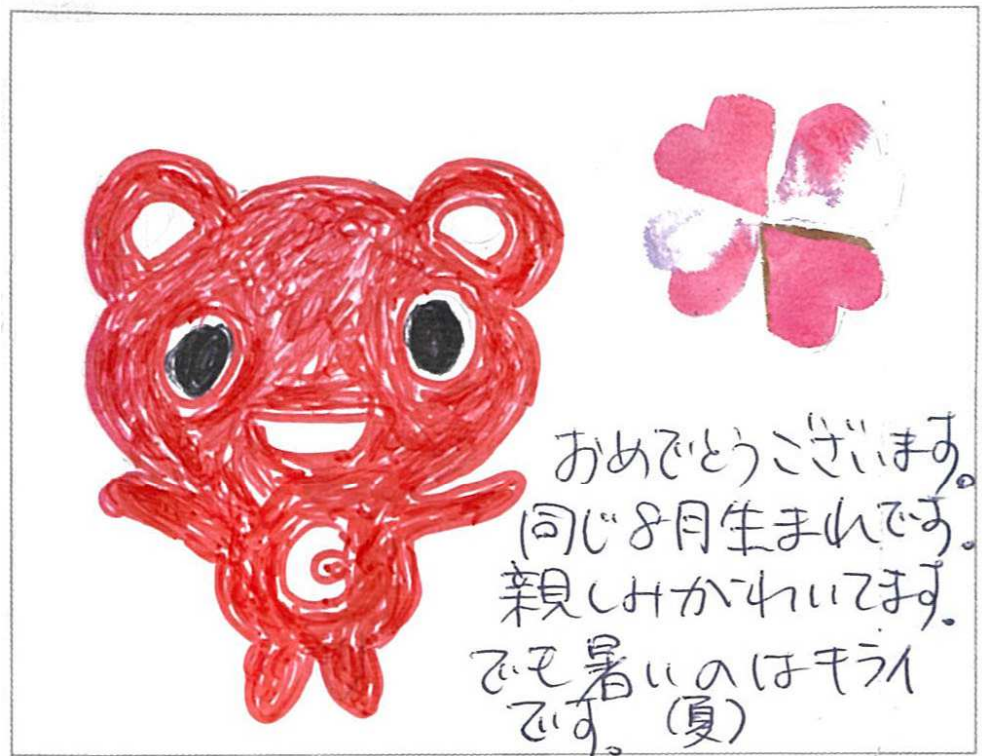 おめでとうございます。
同じ8月生まれです。
親しみがわいてます。
でも暑いのはキライ
です。(夏)